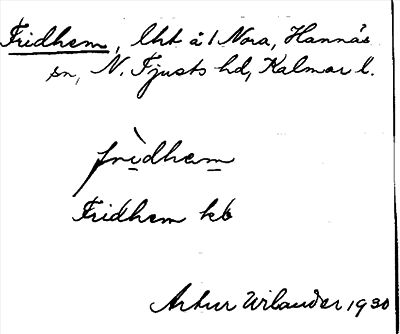 Fridhem, lht å 1 Nora, Hannäs
sn, N. Tjusts hd, Kalmar l.
frìdhem
Fridhem kb
Artur Wilander 1930